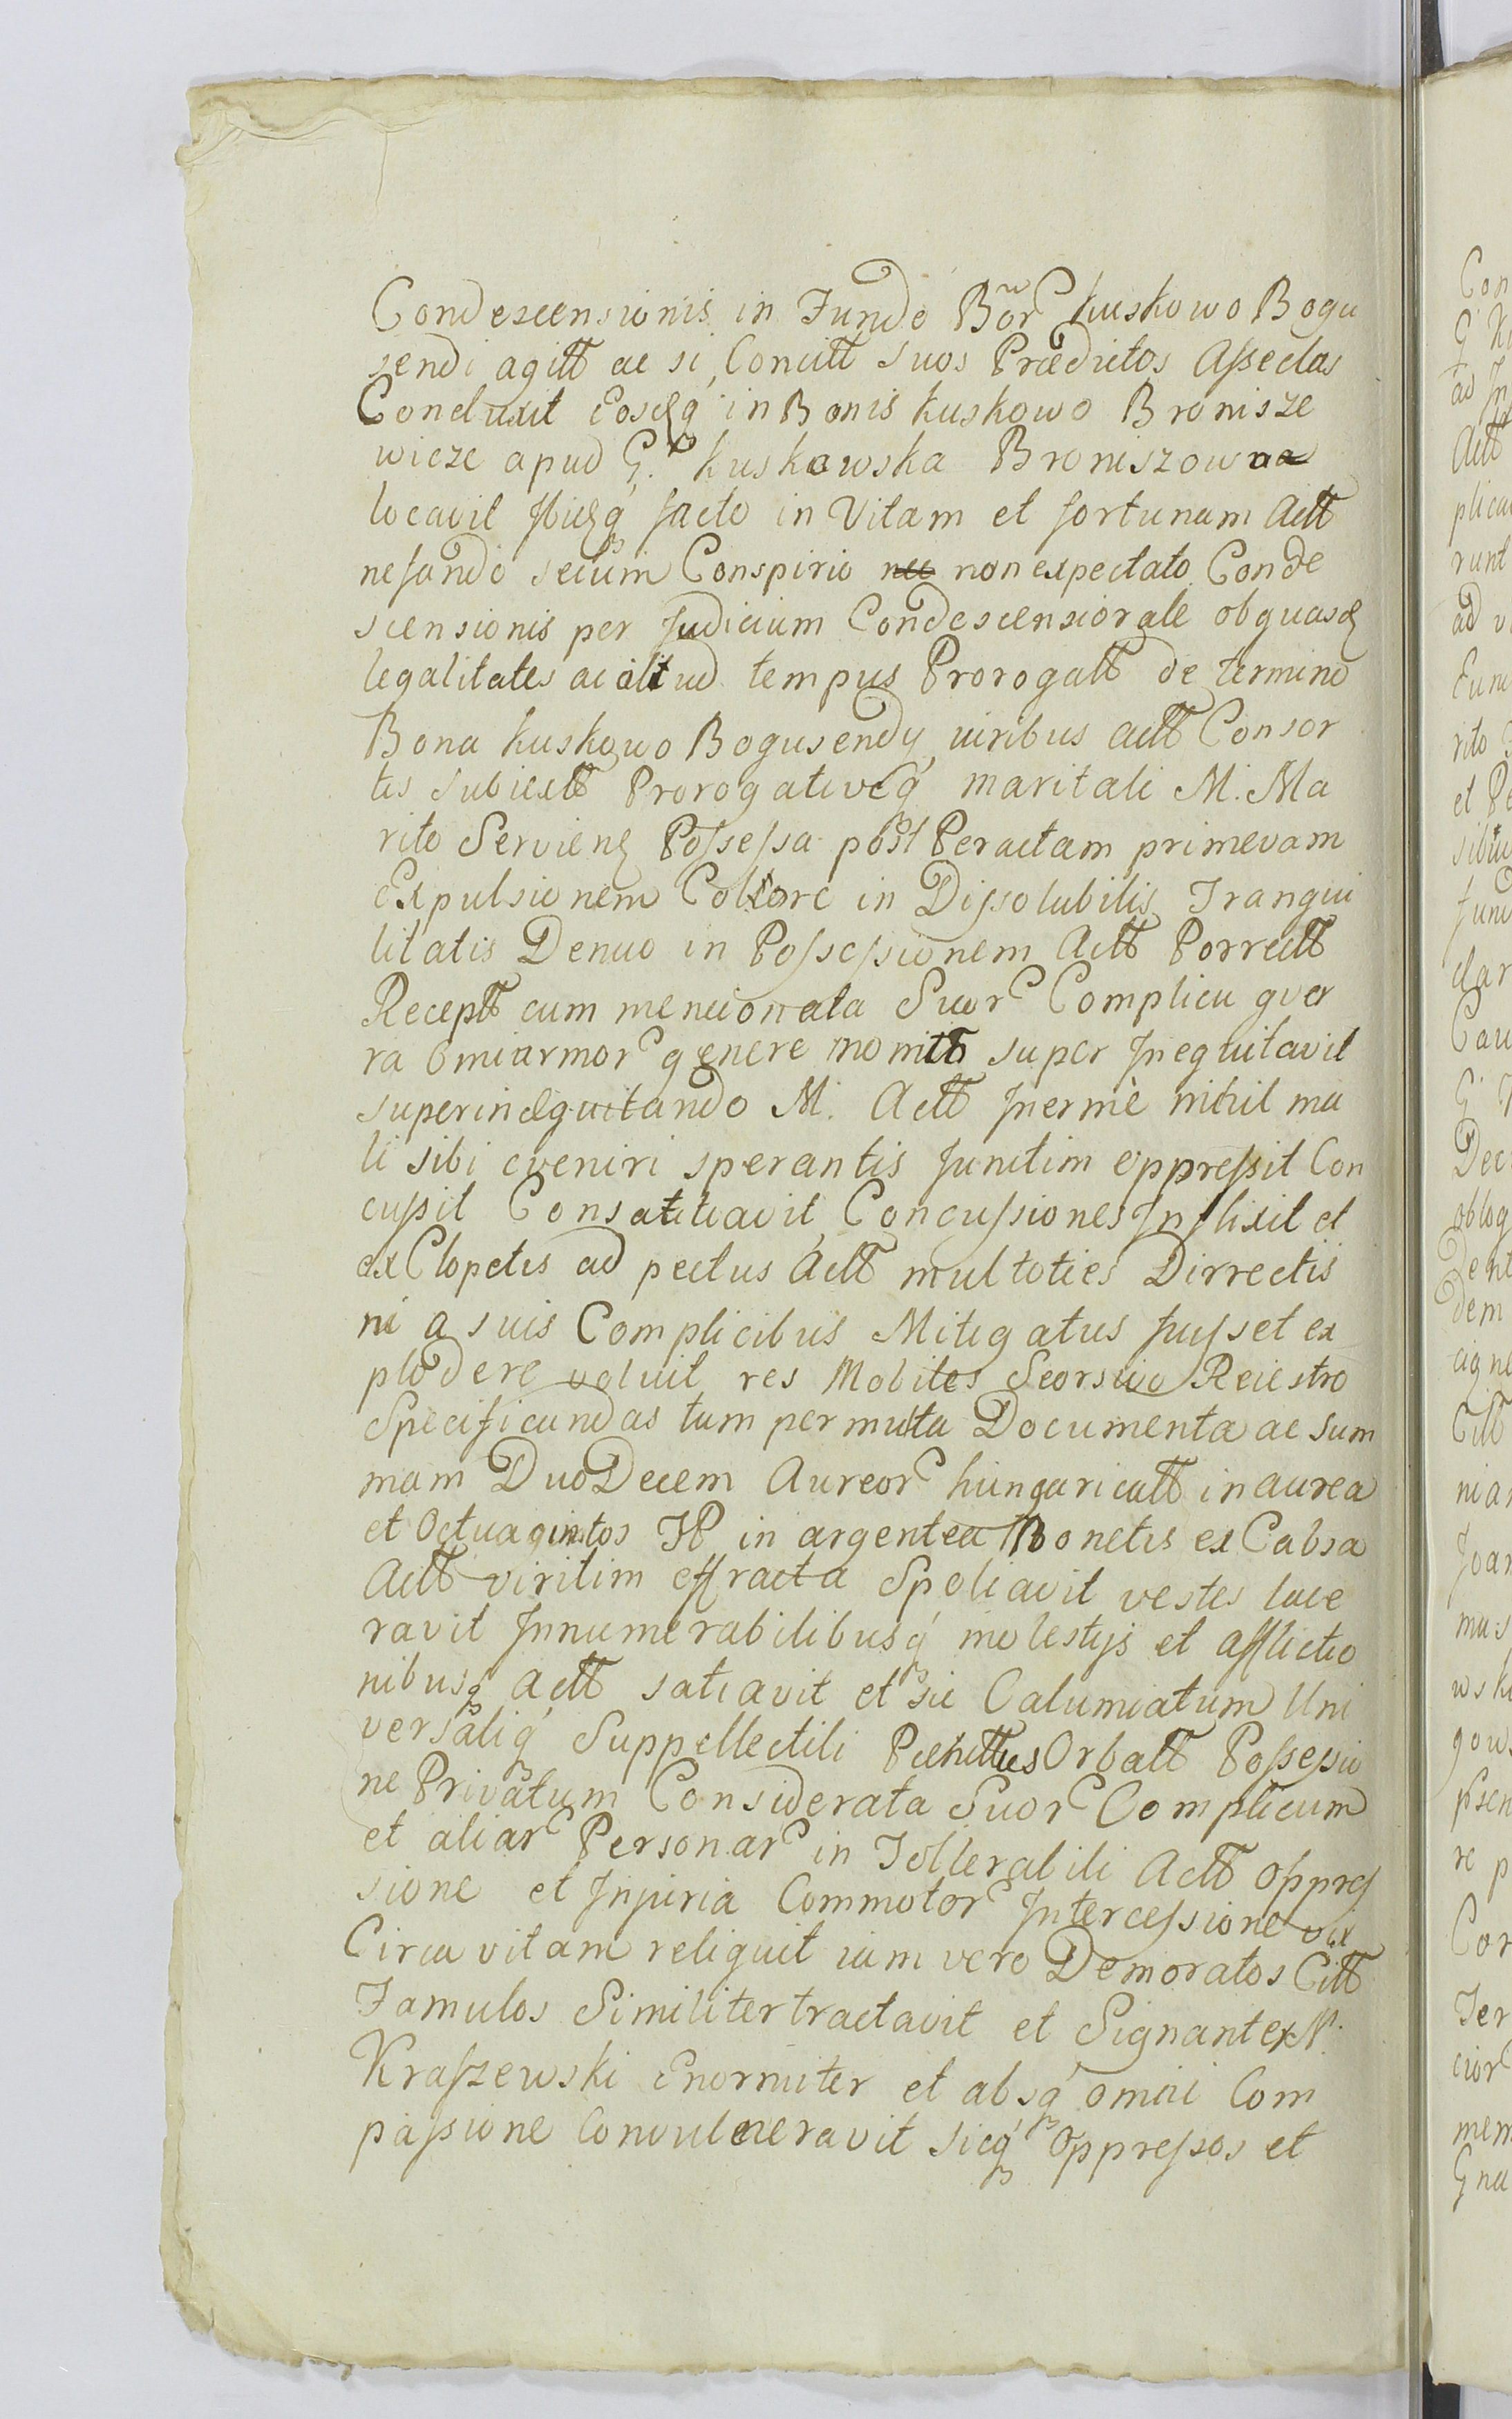 Condescensionis in Fundo Bõr Kuskowo Bogu
sendi agitt ac si Concitt suos Prædictos Asseclas
Conduxit Eosdq in Bonis Kuskowo Bronisze
wicze apud G. Kuskowska Broniszowna
locavit Ibidq facto in Vitam et fortunam Actt
nefando secum Conspirio non expectato Conde
scensionis per Judicium Condescensionale ob quasd
legalitates ac aliud tempus Prorogatt de termino
Bona Kuskowo Bogusendy iuribus actt Consor
tis Subiectt Prorogativeq maritali M. Ma
rito Servienq Possessa post Peractam primevam
Expulsionem in Dissolubilis Tranqui
litatis Denuo in Possessionem Actt Porrectt
Receptt cum mencionata Suor Complicu gver
ra omiarmor genere monitt super Inequitavit
superineequitando M. Actt Inermè nihil ma
li sibi eveniri sperantis Junctim oppressit Con
cussit Concussiones Inflixit et
ex Clopetis ad pectus Actt multoties Dirrectis
ni a suis Complicibus Mitigatus fuisset ex
plodere voluit res Mobiles Seorsivo Reiestro
Specificandas tum permulta Documenta ac sum
mam DuoDecem Aureor hungaricatt in aurea
et Octuagintos in argentea Monetis ex Cabsa
Actt viritim effracta Spoliavit vestes lace
ravit Innumerabilibusq molestijs et afflictio
nibusq actt satiavit et sic Calumiatum Uni
versaliq Suppellectili Orbatt Possessio
ne Privatum Considerata Suor Complicum
et aliar Personar in Tollerabili Actt oppres
sione et Injuria Commotor Intercessione vix
Circa vitam reliquit iam vero Demoratos Citt
Famulos Similiter tractavit et Signanter N.
Kraszewski Enormiter et absq omni Com
passione Convulneravit sicq Oppressos et